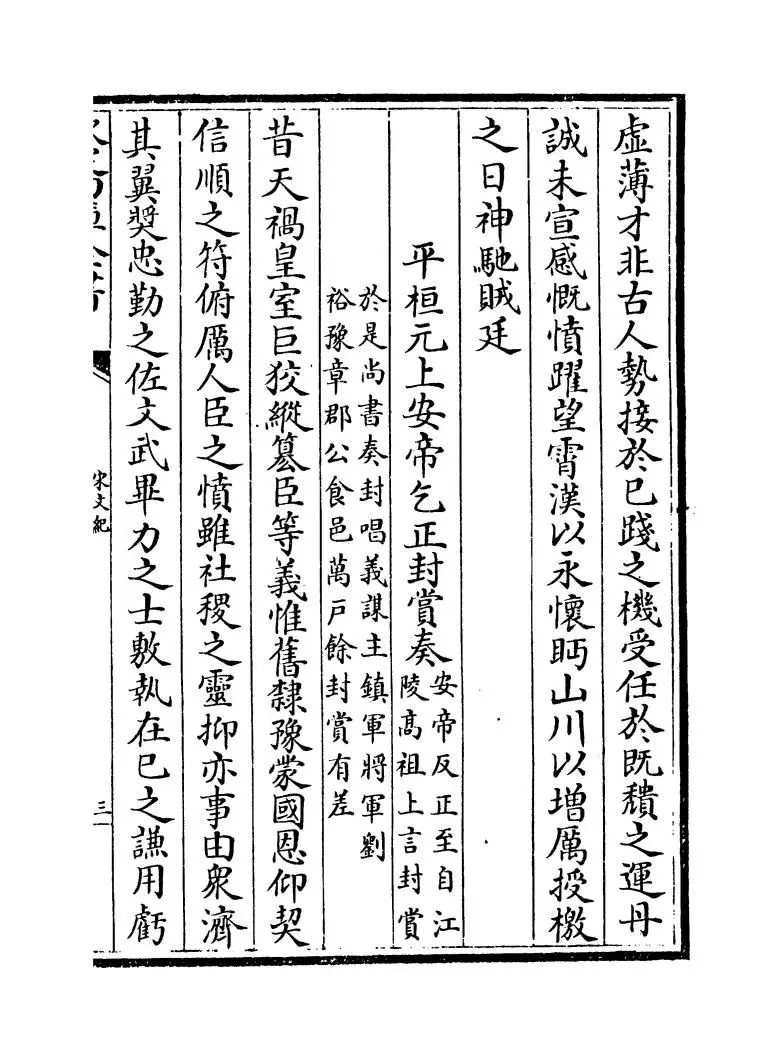 虛薄才非古人勢接於已踐之機受任於既穨之運丹
誠未宣感慨憤躍望霄漢以永懷眄山川以増厲授檄
之日神馳賊廷
平桓元上安帝乞正封賞奏
安帝反正至自江
陵髙祖上言封賞
於是尚書奏封唱義謀主鎮軍將軍劉
裕豫章郡公食邑萬戸餘封賞有差
昔天禍皇室巨狡縱簒臣等義惟舊隸豫蒙國恩仰契
信順之符俯厲人臣之憤雖社稷之靈抑亦事由衆濟
其翼奬忠勤之佐文武畢力之士敷執在已之謙用虧
宋文紀
三